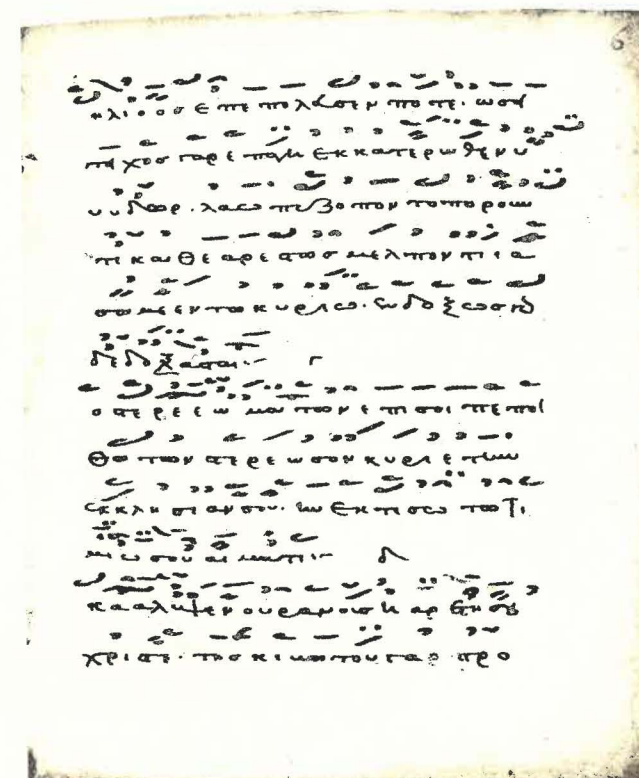 ηλιοοσ επεπολευσεν ποτε· ωσει
τηχοσ γαρ επαγη εκκατερωθεν υ
υυδωρ· λαω πεζοποντοπορουν
τι και θεαρεστωσ μελποντι α
σωμεν τω κυριω· ενδοξωσ γαρ
δεδοξασται· γ
στερεεωμα των επι σοι πεποι
θοτων στερεωσον κυριε την
εκκλησιαν σου· ην εκτισω τω τι
μιω σου αιματι· δ
κααλυψεν ουρανουσ η αρετη σου
χριστε· τησ κιβωτου γαρ προ